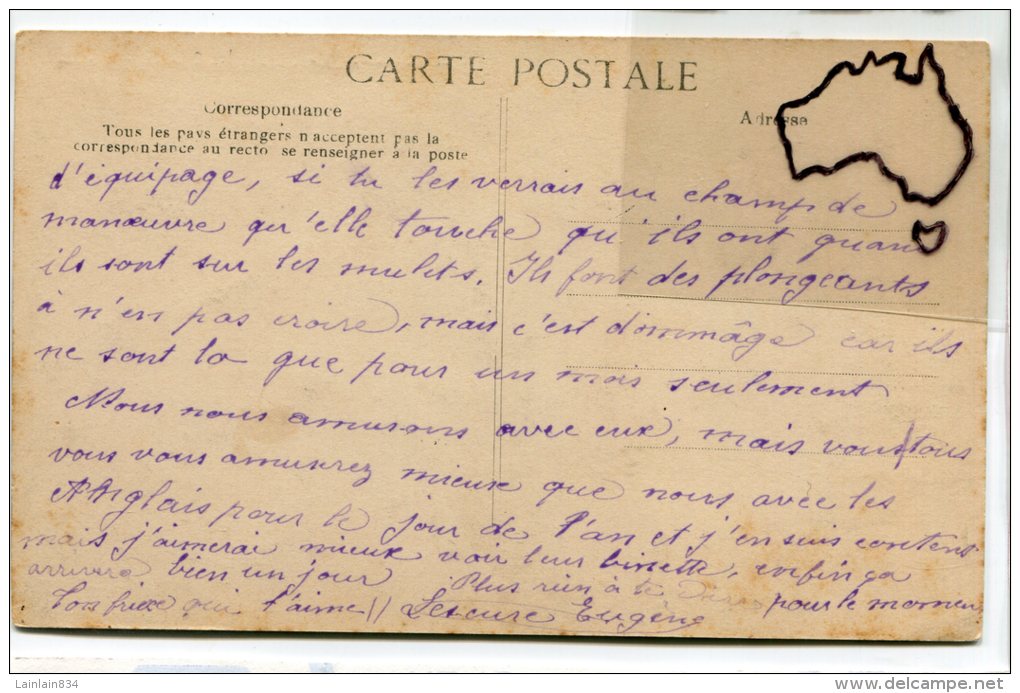 CARTE POSTALE
Correspondance
Adresse
Tous les pays étrangers n acceptent pas la
correspondance au recto se renseigner à la poste
d'équipage, si tu les verrais au champ de
manœuvre qu'elle touche qu'ils ont quand
ils sont sur les mulets. Ils font des plongeants
à n'en pas croire, mais c'est dommâge car ils
ne sont la que pour un mois seulement
Nous nous amusons avec eux, mais vous tous
vous vous amuserez mieux que nous avec les
Anglais pour le jour de l'an et j'en suis content
mais j'aimerai mieux voir leur binette, enfin ça
arrivera bien un jour Plus rien à te dire pour le momen
Ton frère qui t'aime // Lescure Eugène
Lainlain834
www.delcampe.net